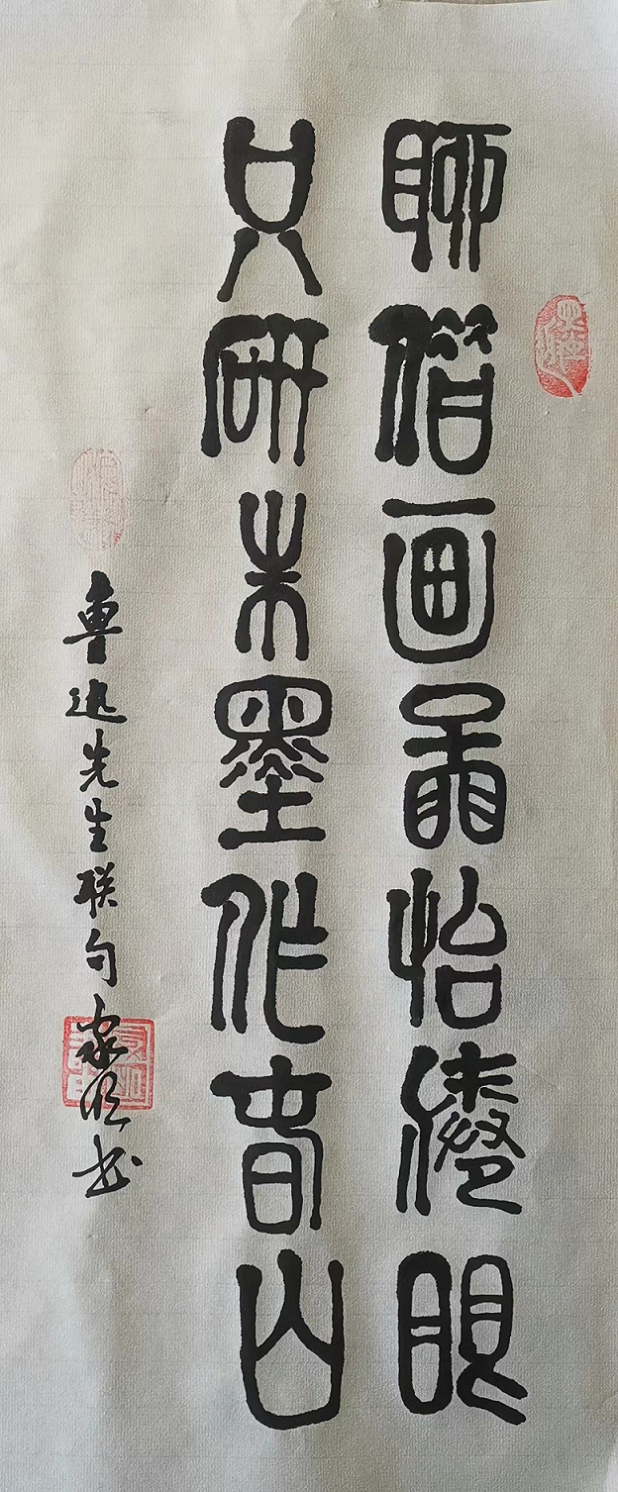 聊借画图怡倦眼
只研朱墨作春山
魯迅先生联句家明书